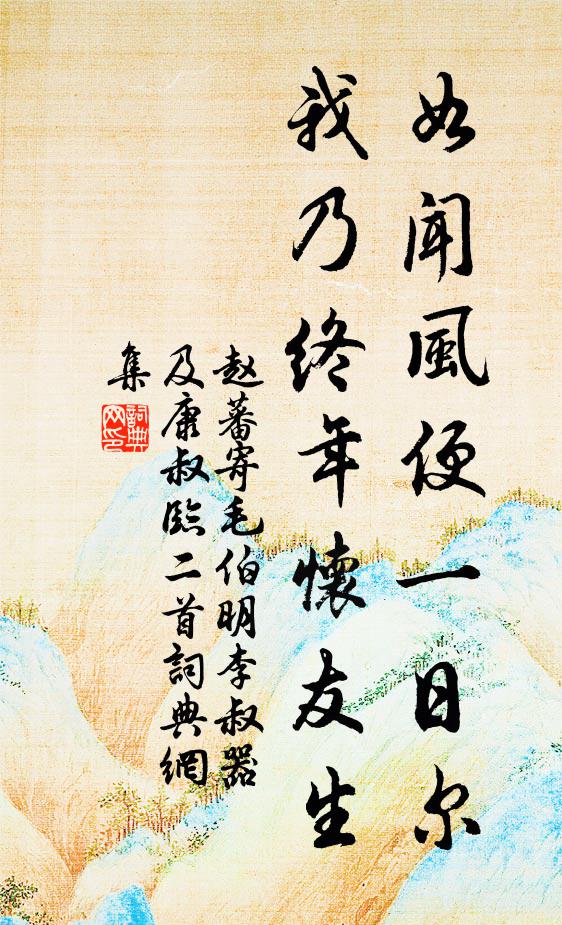 如聞風便一日尔
我乃終年懷友生
赵蕃寄毛伯明李叔器
及康叔臨二首詞典網
集
詞典
网印